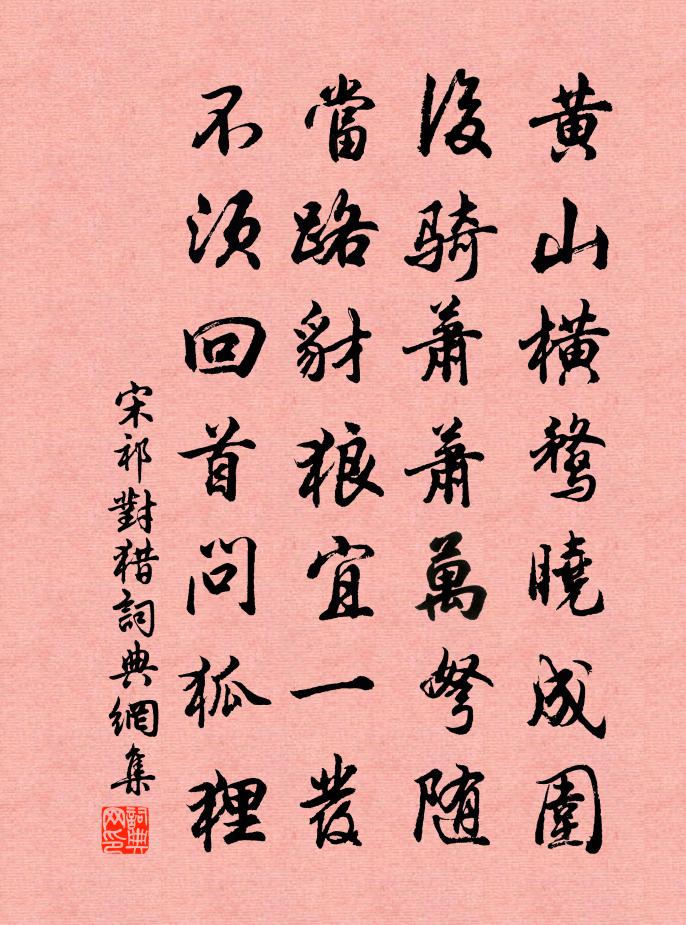 黄山橫鶩曉成圍
後騎蕭蕭萬弩随
當路豺狼宜一發
不須回首問狐狸
宋祁對猎詞典網集
詞典网印